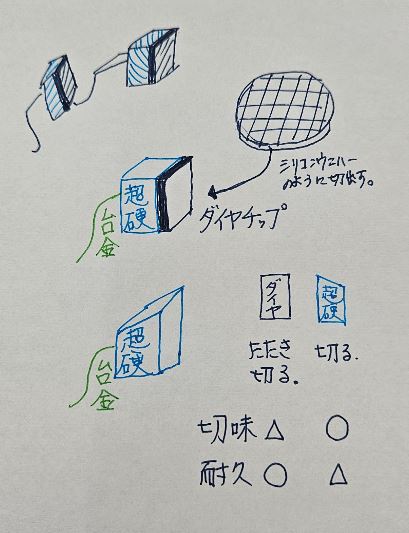 シリコンウエハー
のように切出す。
超
硬
台
金
ダイヤチップ
超
硬
台
金
ダイヤ
超硬
たたき
切る。
切る.
切味 △ ○
耐久 ○ △